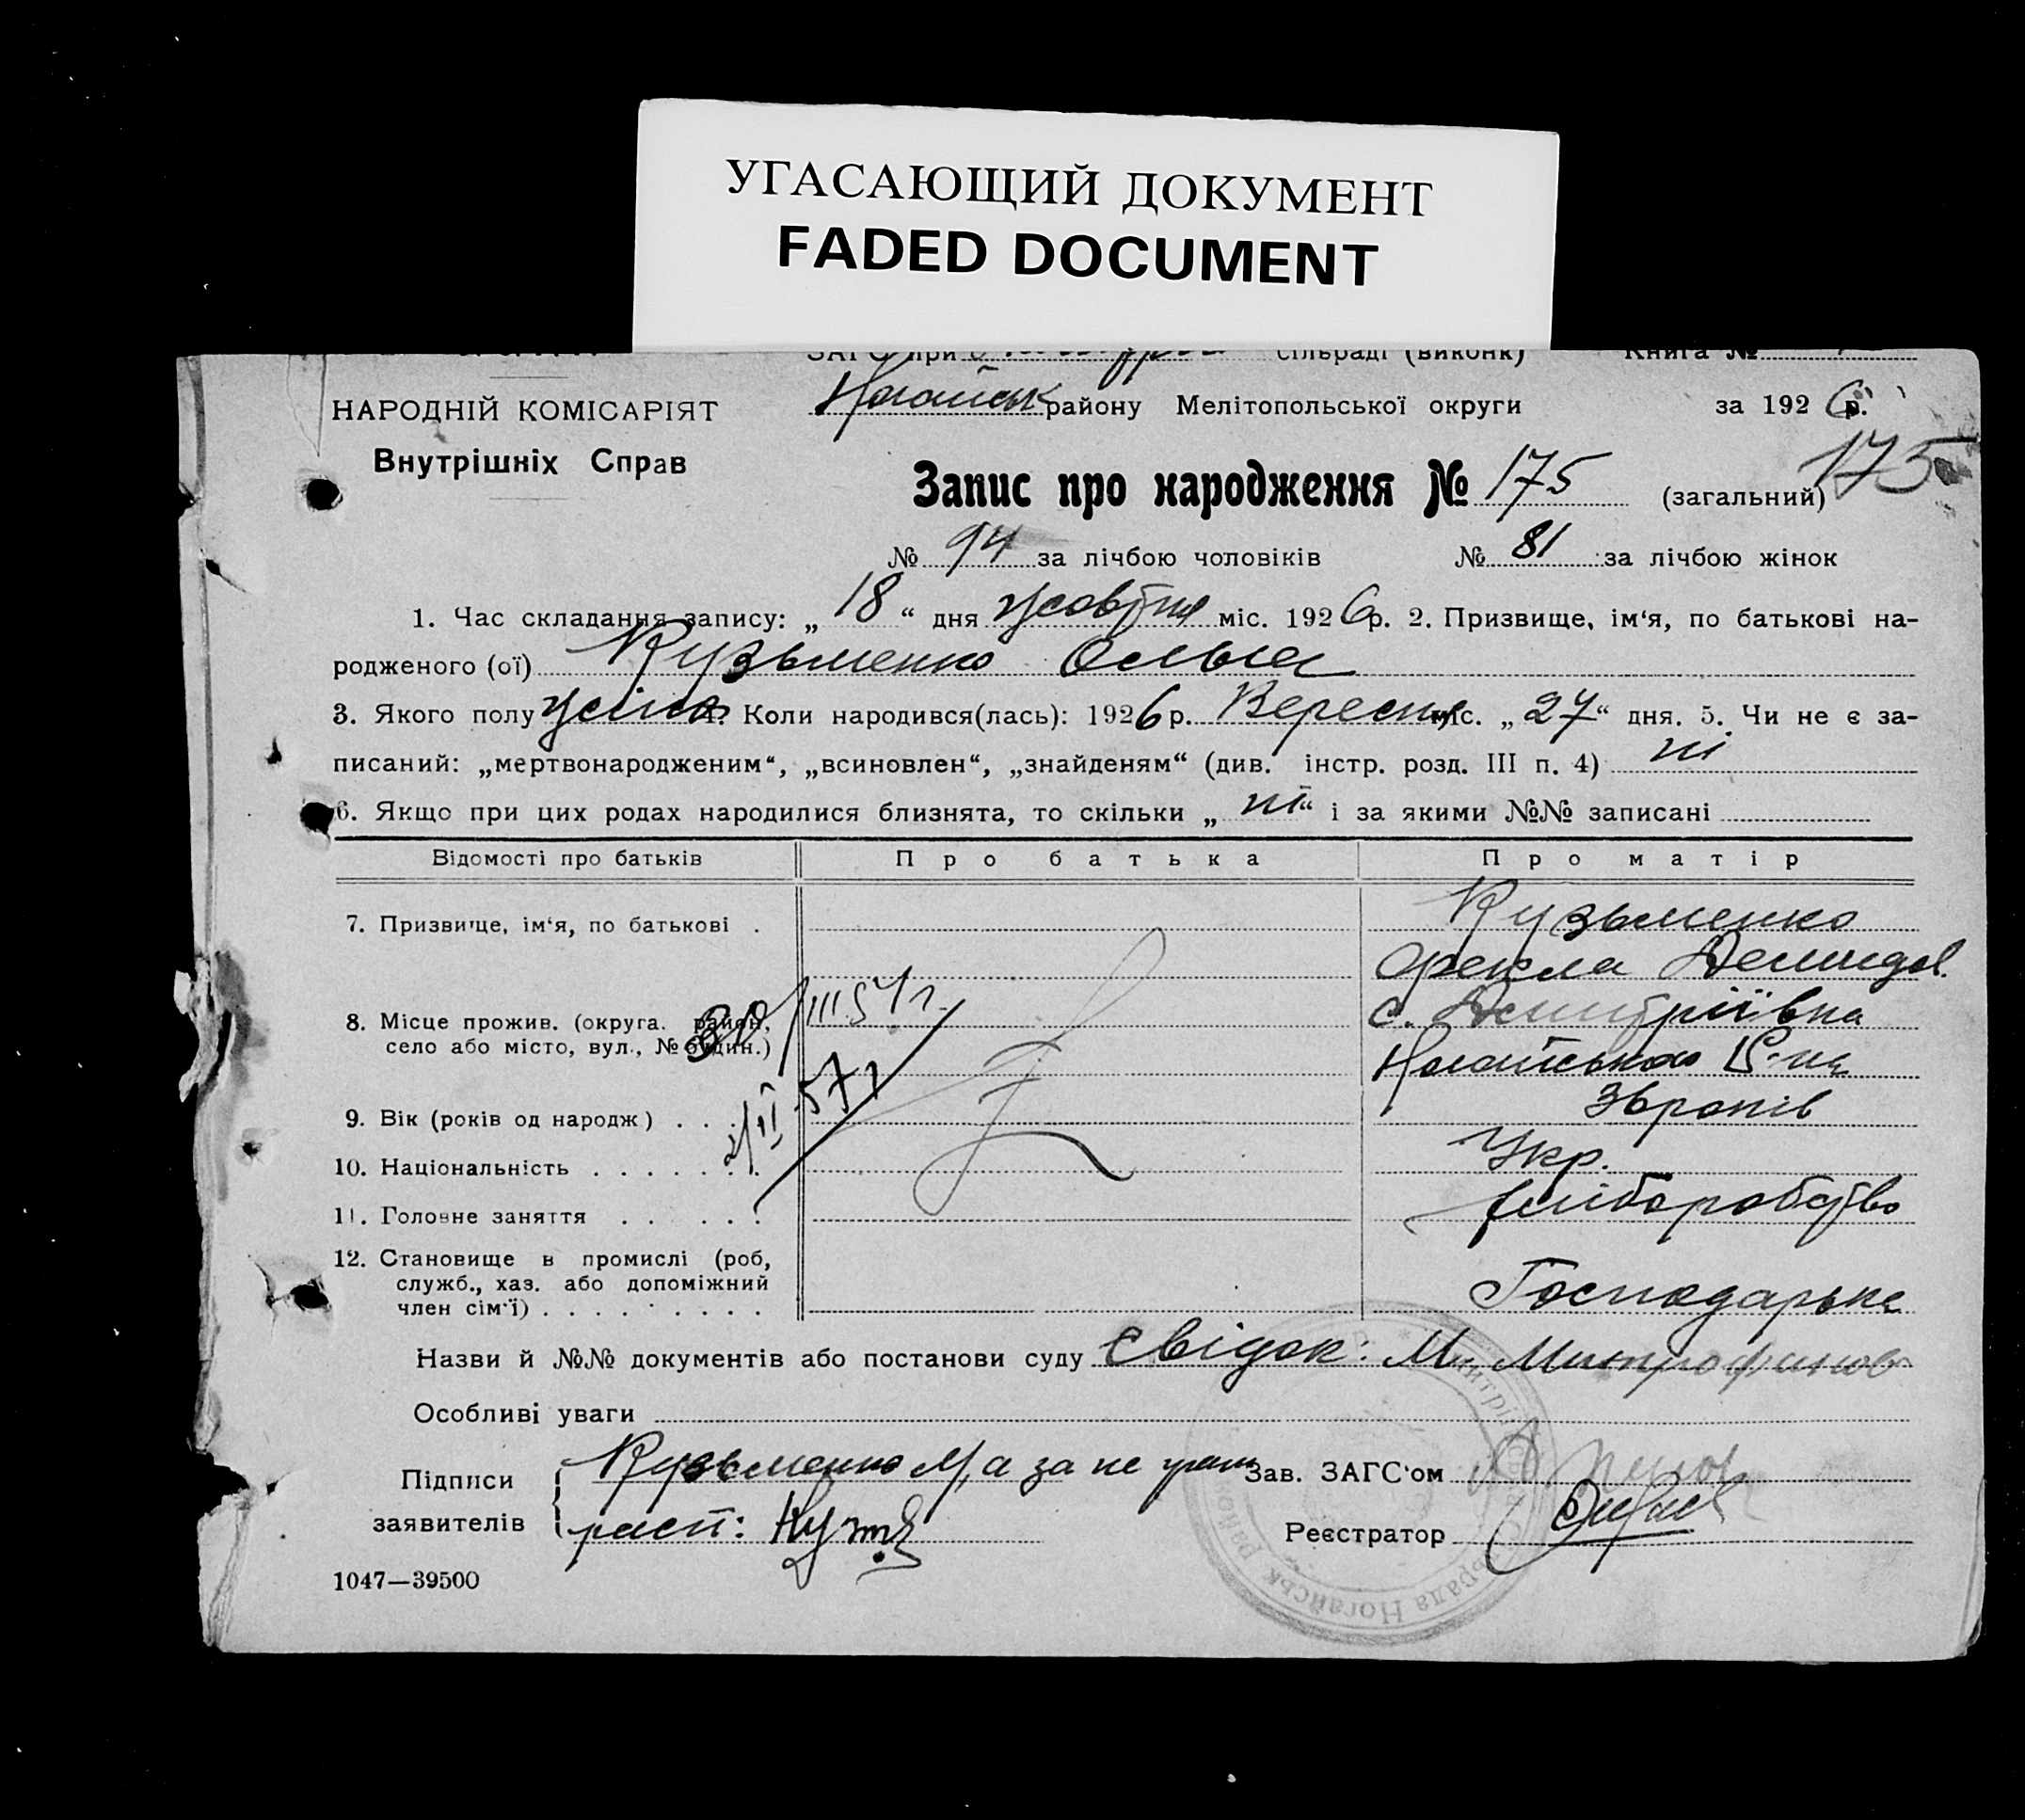 УГАСАЮЩИЙ ДОКУМЕНТ
FADED DOCUMENT
ЗАГС при сільраді (виконк) Книга №
НАРОДНІЙ КОМІСАРІЯТ
Внутрішніх Справ
Ногайськ району Мелітопольської округи за 1926 р.
175
Запис про народження № 175 (загальний)
№ 94 за лічбою чоловіків № 81 за лічбою жінок
1. Час складання запису: „ 18 “ дня жовтня міс. 1926 р. 2. Призвище, ім‘я, по батькові на-
родженого (ої) Кузьменко Ольга
3. Якого полу жіноч. 4. Коли народився(лась): 1926 р. Вересня міс. „ 27 “ дня. 5. Чи не є за-
писаний: „мертвонародженим“, „всиновлен“, „знайденям“ (див. інстр. розд. III п. 4) ні
6. Якщо при цих родах народилися близнята, то скільки „ ні “ і за якими №№ записані
Відомості про батьків Про батька Про матір
7. Призвище, ім‘я, по батькові . Кузьменко
Фекла Демидов.
8. Місце прожив. (округа. район, село або місто, вул., № будин.) с. Дмитріївка
Ногайського Р-ну
30/III 57 г.
9. Вік (років од народж) . . . 36 років
2/II 57 г
10. Національність . . . . . . . Укр.
11. Головне заняття . . . . . . хліборобство
12. Становище в промислі (роб,
служб., хаз. або допоміжний
член сім‘ї) . . . . . . . . . Господарька
Назви й №№ документів або постанови суду Свідок: М. Митрофанов
Особливі уваги
Підписи заявителів Кузьменко М, а за не грам
расп:
Зав. ЗАГС‘ом
Реєстратор
1047—39500